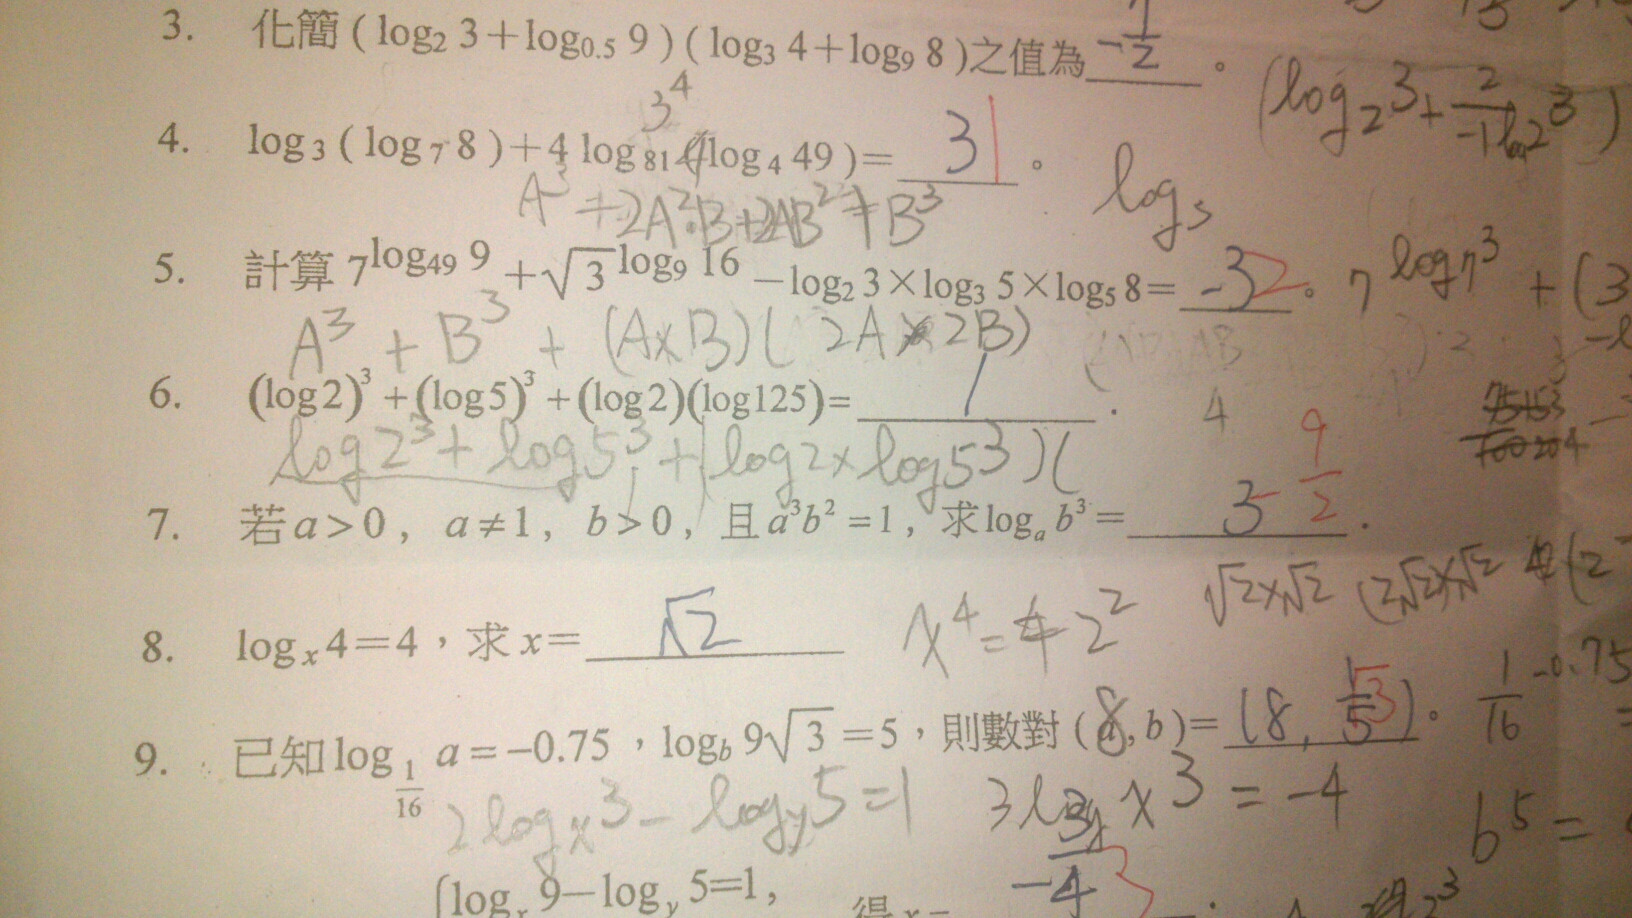 3. 化簡 ( log₂ 3+log₀.₅ 9 ) ( log₃ 4+log₉ 8 )之值為 -7/2 。
(log₂3+ 2/-1 log₂3 )
3⁴
4. log ₃ ( log ₇ 8 )+4 log ₈₁ ( log ₄ 49 )= 3 1 。
A³ +2A²B+2AB² + B³
log₅
5. 計算 7^log₄₉ 9 +√3^log₉ 16 −log₂ 3×log₃ 5×log₅ 8= -3 2 。 7^log₇3 + (3
A³ + B³ + (A×B)( 2A × 2B)
6. (log2)³ +(log5)³ +(log2)(log125)= 1 .
4
log2³ + log5³ + (log2× log53)(
7. 若a>0, a≠1, b>0, 且a³b² =1, 求logₐ b³ = 3 -9/2 .
√2×√2 (2√2)×√2
8. log ₓ 4=4,求 x= √2
x⁴ = 4 2²
9. 已知 log 1/16 a =−0.75,log_b 9√3 =5,則數對 ( a , b )= (8, 1/5 √3 )。
1/16 -0.75 =
2 logₓ 3 - log_y 5 =1
3 log_y x³ = -4
b⁵ =
{log_x 9−log_y 5=1,
-3/4 3
得 x=